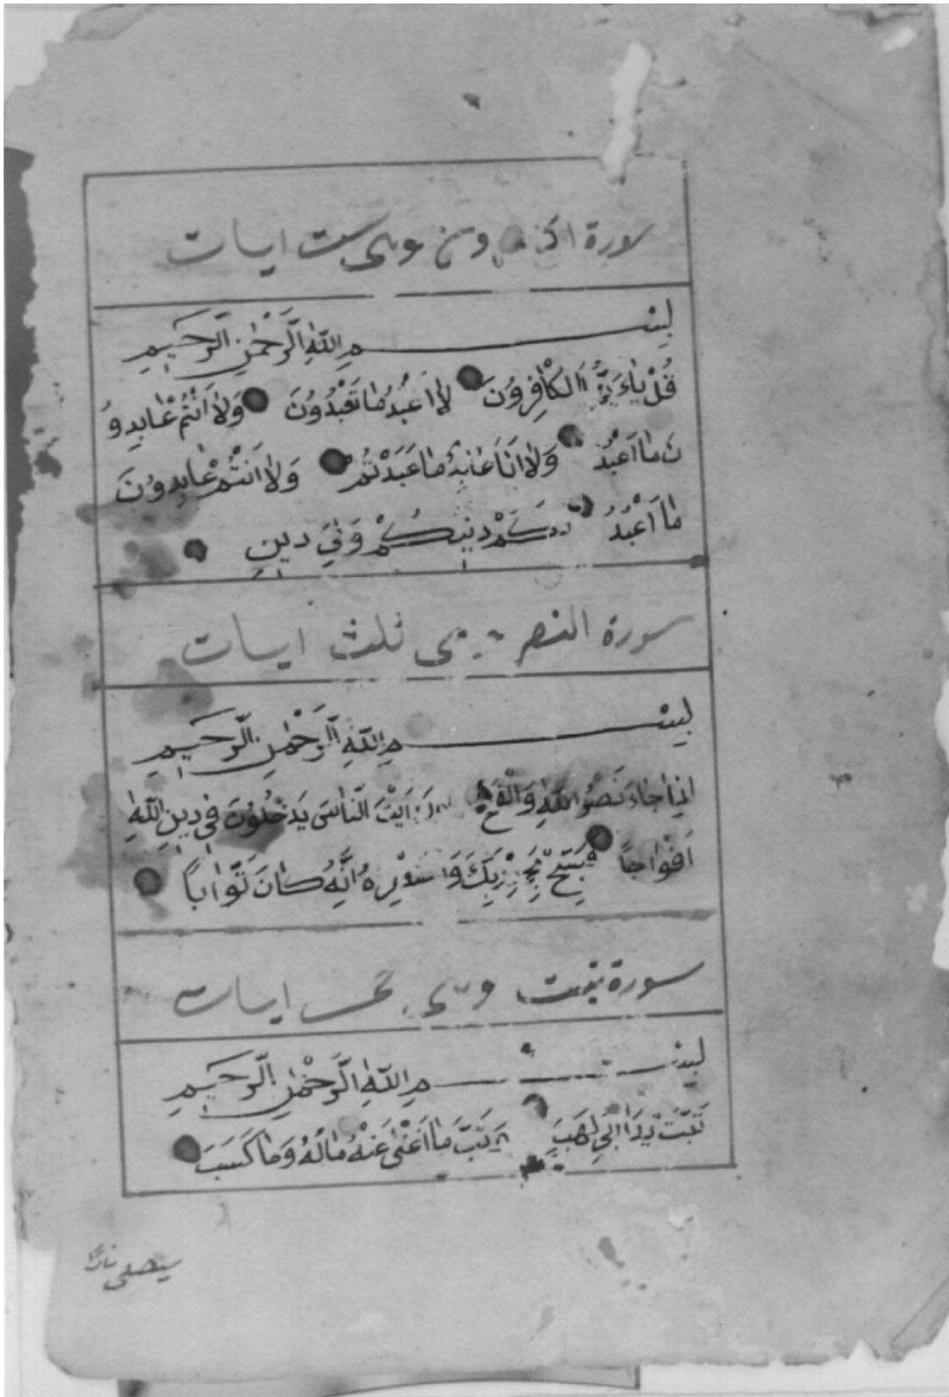 سورة وهى ست ايات
بِسْمِ اللّٰهِ الرَّحْمٰنِ الرَّحِيمِ
قُلْ يٰاءَيُّهَا الْكٰافِرُونَ لٰا اَعْبُدُ مٰا تَعْبُدُونَ وَلٰا اَنْتُمْ عٰابِدُو
نَ مٰا اَعْبُدُ وَلٰا اَنَا عٰابِدٌ مٰا عَبَدْتُمْ وَلٰا اَنْتُمْ عٰابِدُونَ
مٰا اَعْبُدُ لَكُمْ دِينُكُمْ وَلِيَ دِينِ
سورة النصر وهى ثلث ايات
بِسْمِ اللّٰهِ الرَّحْمٰنِ الرَّحِيمِ
اِذٰا جٰاءَ نَصْرُ اللّٰهِ وَالْفَتْحُ رَاَيْتَ النّٰاسَ يَدْخُلُونَ فِي دِينِ اللّٰهِ
اَفْوٰاجاً رَبِّكَ اِنَّهُ كٰانَ تَوّٰاباً
سورة تبت وهى خمس ايات
بِسْمِ اللّٰهِ الرَّحْمٰنِ الرَّحِيمِ
تَبَّتْ يَدٰا اَبِي لَهَبٍ وَتَبَّ مٰا اَغْنٰى عَنْهُ مٰالُهُ وَمٰا كَسَبَ
سيصلى نارًا